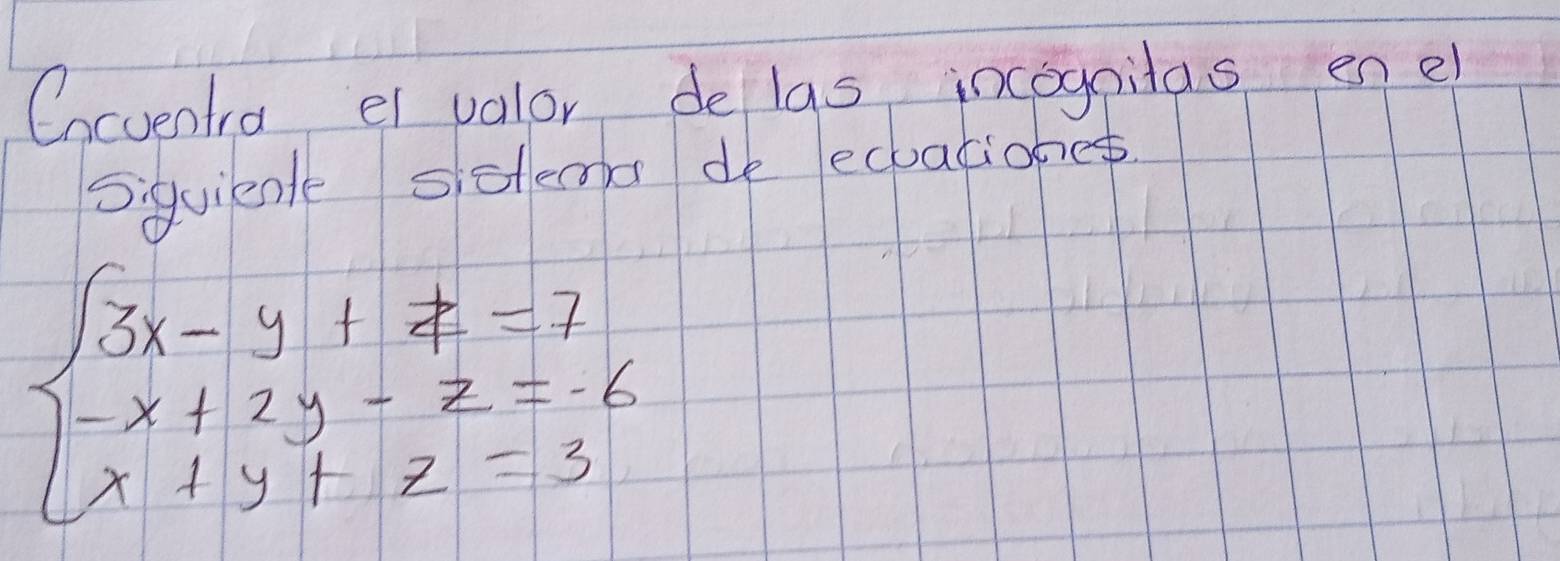 Encuentra el valor de las incógnitas en el
siguiente sistema de ecuaciones.
3x - y + z = 7
-x + 2y - z = -6
x + y + z = 3